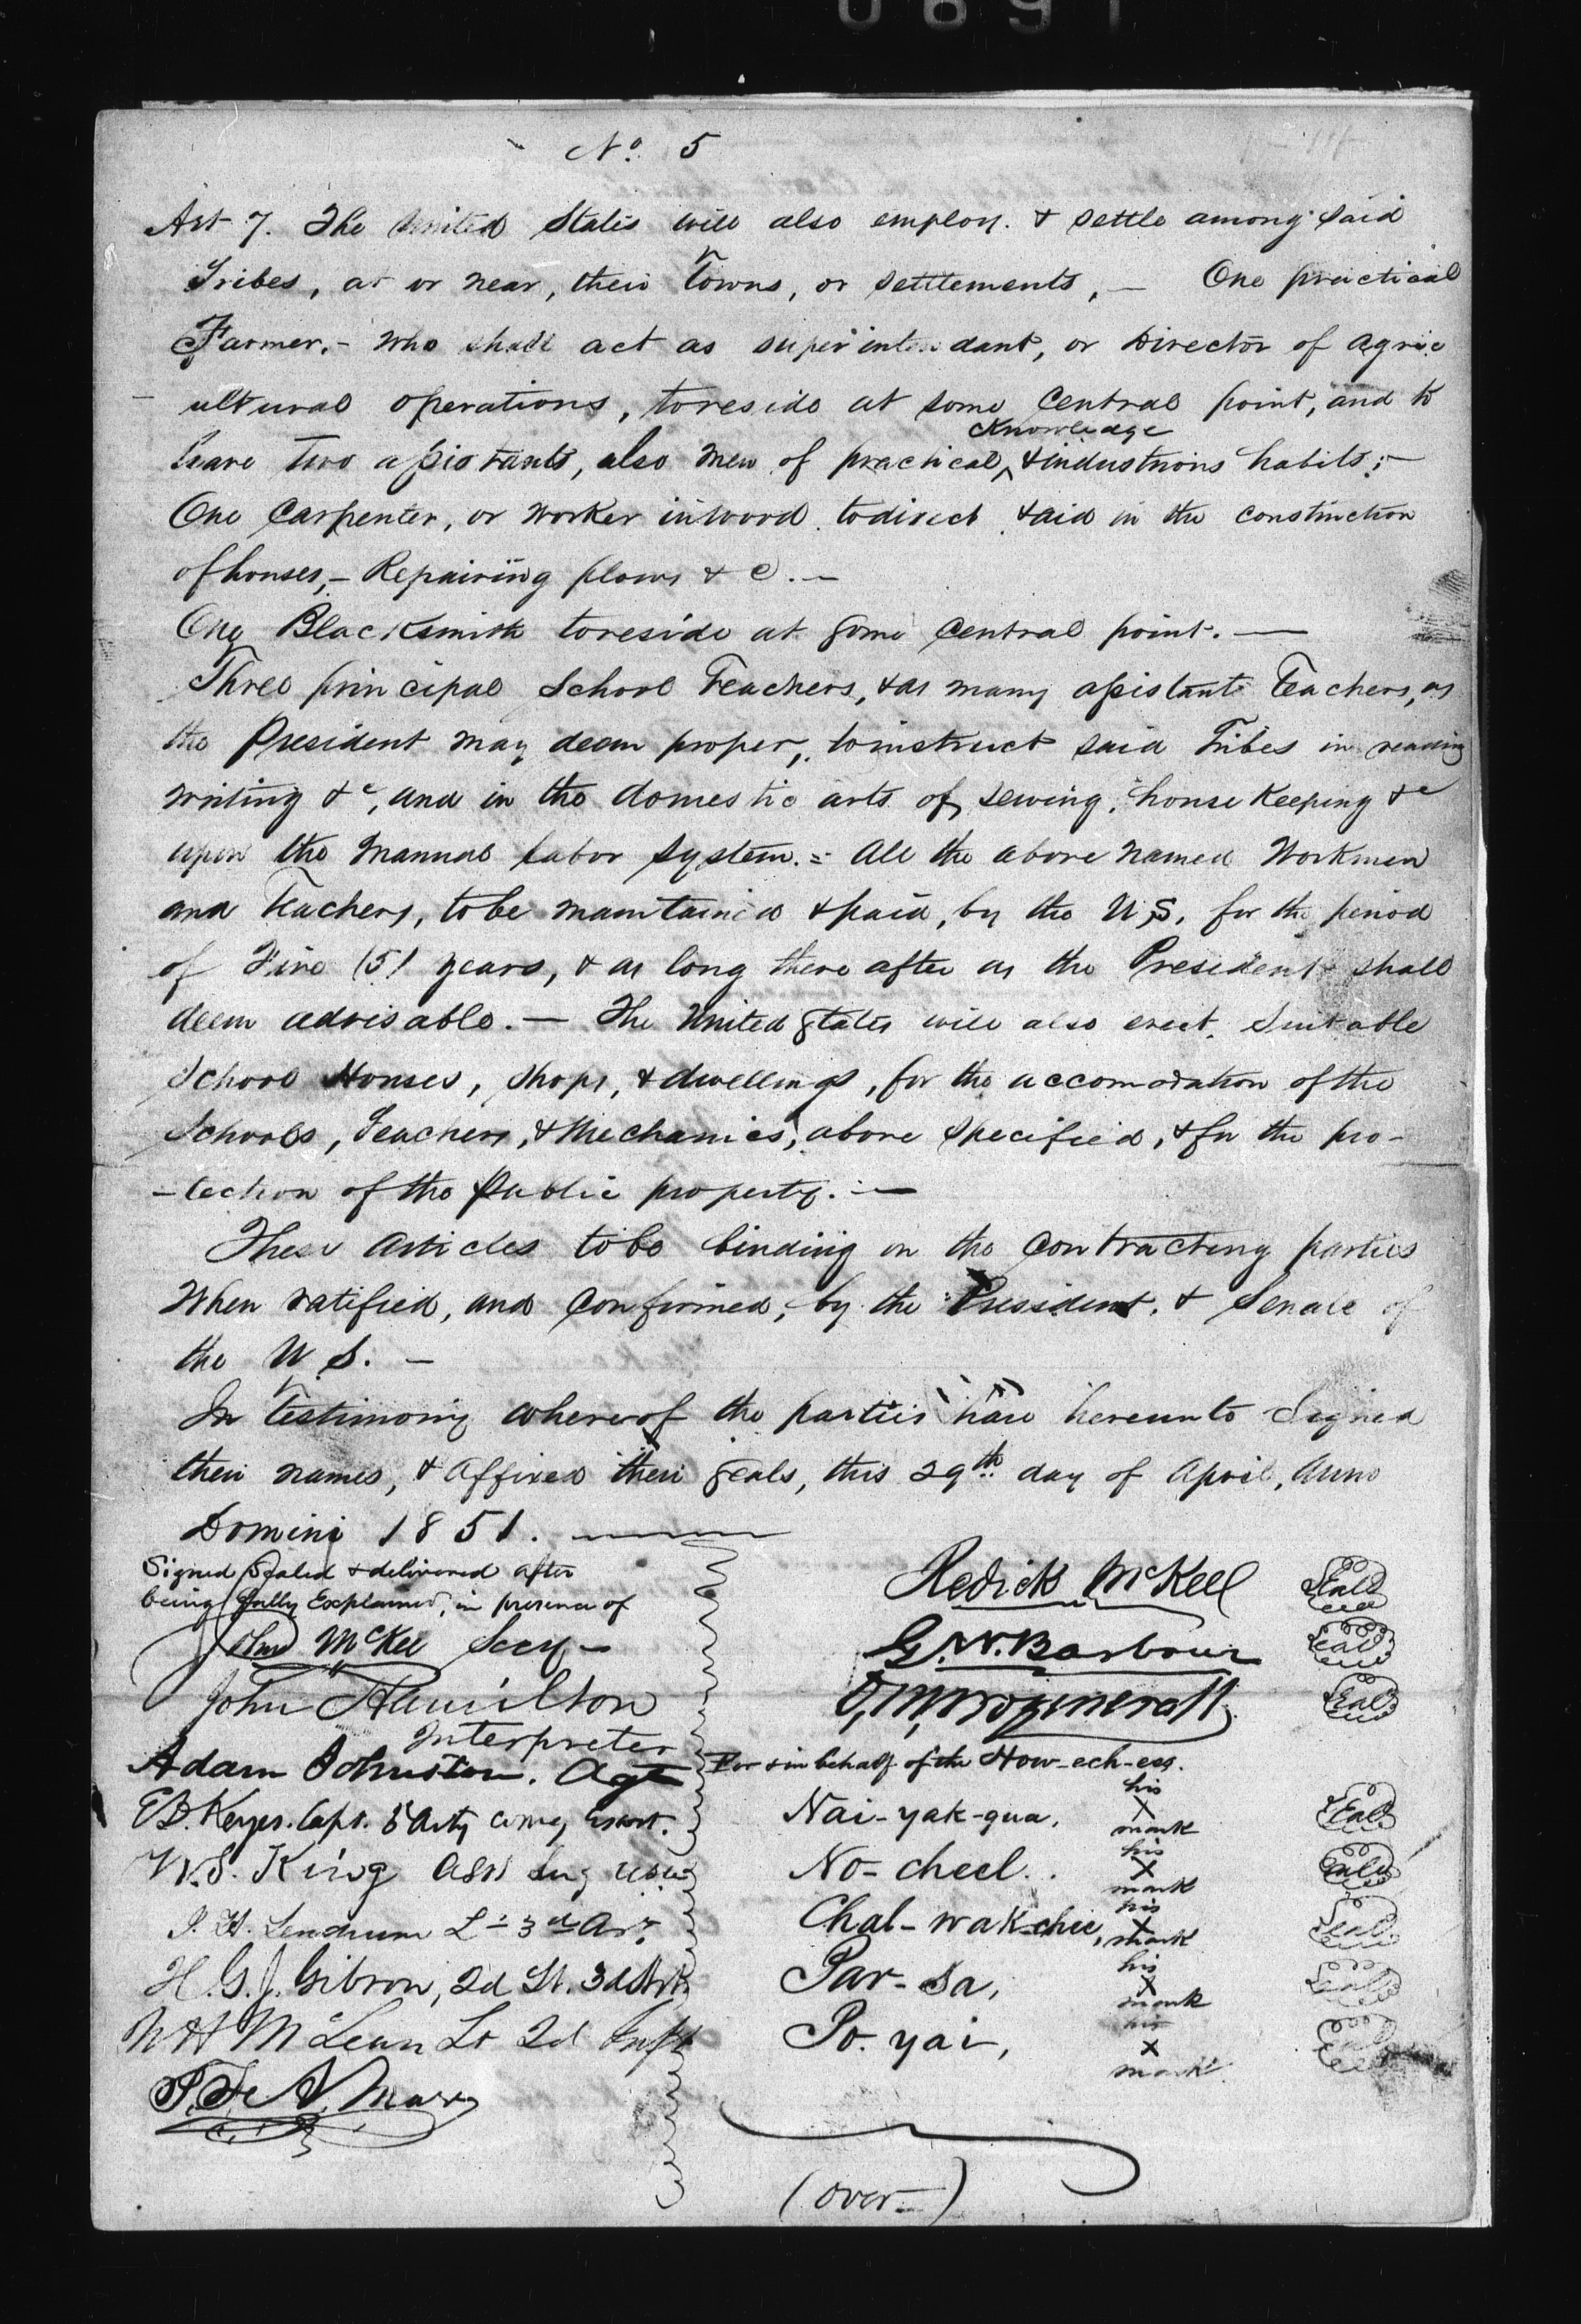 No. 5
Art 7. The United States will also employ. & settle among said
Tribes, at or near, their Towns, or settlements, — One practical
Farmer, - who shall act as superintendant, or Director of agric
- ultural operations, to reside at some Central point, and to
Knowledge
have two assistants, also men of practical, & industrious habits; -
One Carpenter, or worker in wood to direct & aid in the construction
of houses, - Repairing plows & c. —
One Blacksmith to reside at some Central point. —
Three principal School Teachers, & as many assistant Teachers, as
the President may deem proper, to instruct said Tribes in reading
writing &c, and in the domestic arts of sewing, house Keeping &c
upon the manual labor system. = All the above named Workmen
and Teachers, to be maintained & paid, by the U,S, for the period
of Five (5) years, & as long there after as the President shall
deem advisable. — The United States will also erect. Suitable
School Houses, shops, & dwellings, for the accomodation of the
Schools, Teachers, & Mechanics, above specified, & for the pro-
-tection of the Public property. —
These Articles to be binding on the contracting parties
When ratified, and Confirmed, by the President, & Senate of
the U S. —
In Testimony whereof the parties have hereunto Signed
their names, & affixed their seals, this 29th day of April, Anno
Domini 1851.
Signed Sealed & delivered after
being fully Explained, in presence of
John McKee Secy -
John Hamilton
Interpreter
Adam Johnston. Agt
E D. Keyes. Capt. 3d Arty comg Escort.
W.S. King Asst Surg USA
I. H. Lendrum Lt 3d Arty
H. G. J. Gibson, 2d Lt. 3d Arty
N H McLean Lt 2d Infy
Redick McKee Seal
G. W. Barbour Seal
O, M, Wozencraft Seal
For & in behalf of the How-ech-ees.
his
Nai-yak-qua, X Seal
mark
his
No-cheel.. X Seal
mark
his
Chal-wak-chee, X Seal
mark
his
Par-sa, X Seal
mark
his
Po-yai, X Seal
mark
(over)